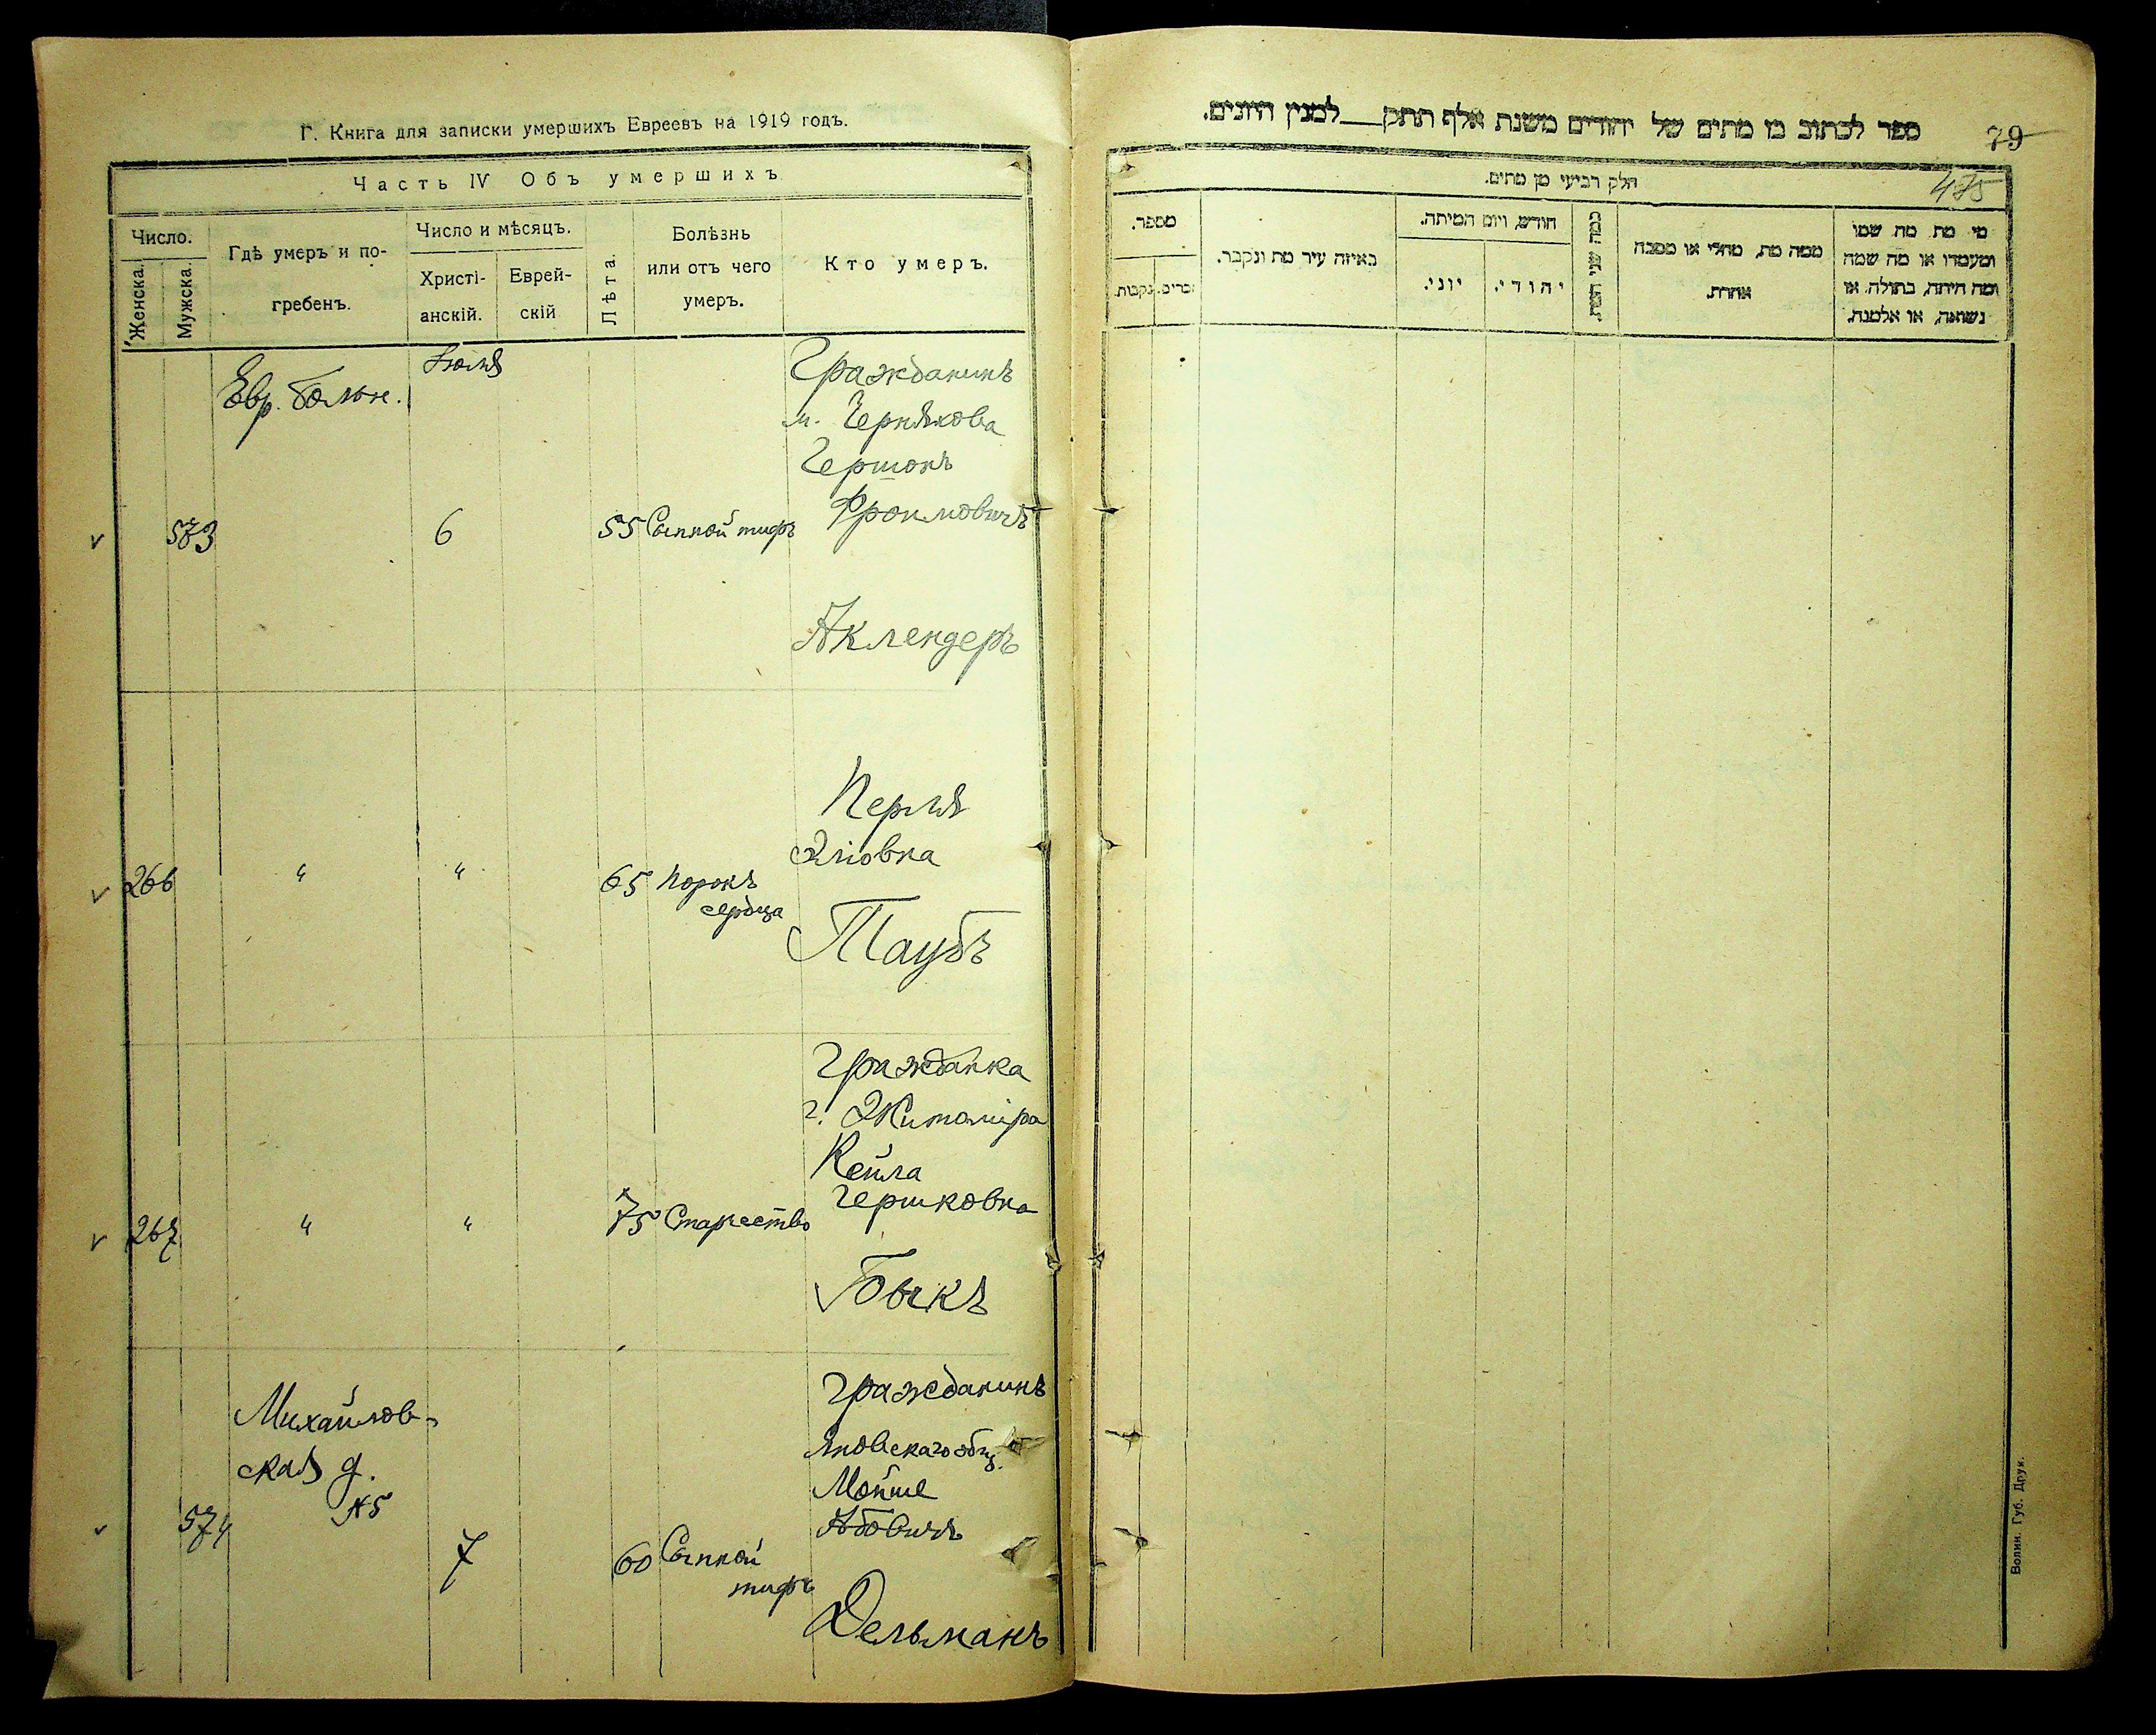 Г. Книга для записки умершихъ Евреевъ на 1919 годъ.
Часть IV Объ умершихъ
Число.
Женска.
Мужска.
Гдѣ умеръ и по-
гребенъ.
Число и мѣсяцъ.
Христі-
анскій.
Еврей-
скій
Лѣта.
Болѣзнь
или отъ чего
умеръ.
Кто умеръ.
Евр. больн.
Іюля
573
6
55
Сыпной тифъ
Гражданинъ
м. Чернякова
Гершонъ
Фроимовичъ
Аклендеръ
266
"
"
65
Порокъ
сердца
Перля
Эліовна
Таубъ
267
"
"
75
Старчество
Гражданка
г. Житоміра
Кейла
Гершковна
Быкъ
574
Михайлов-
ская д.
№5
7
60
Сыпной
тифъ
Гражданинъ
Яновскаго общ.
Мойше
Абовичъ
Дельманъ
ספר לכתוב בו מתים של יהודים משנת אלף תתק למנין היונים.
79
475
חלק רביעי מן מתים.
מספר.
זכרים.
נקבות.
באיזה עיר מת ונקבר.
חודש, ויום המיתה.
יוני.
יהודי.
כמה שני המת.
ממה מת, מחלי או מסבה
אחרת.
מי מת מה שמו
ומעמדו או מה שמה
ומה היתה, בתולה, או
נשואה, או אלמנה.
Волин. Губ. Друк.